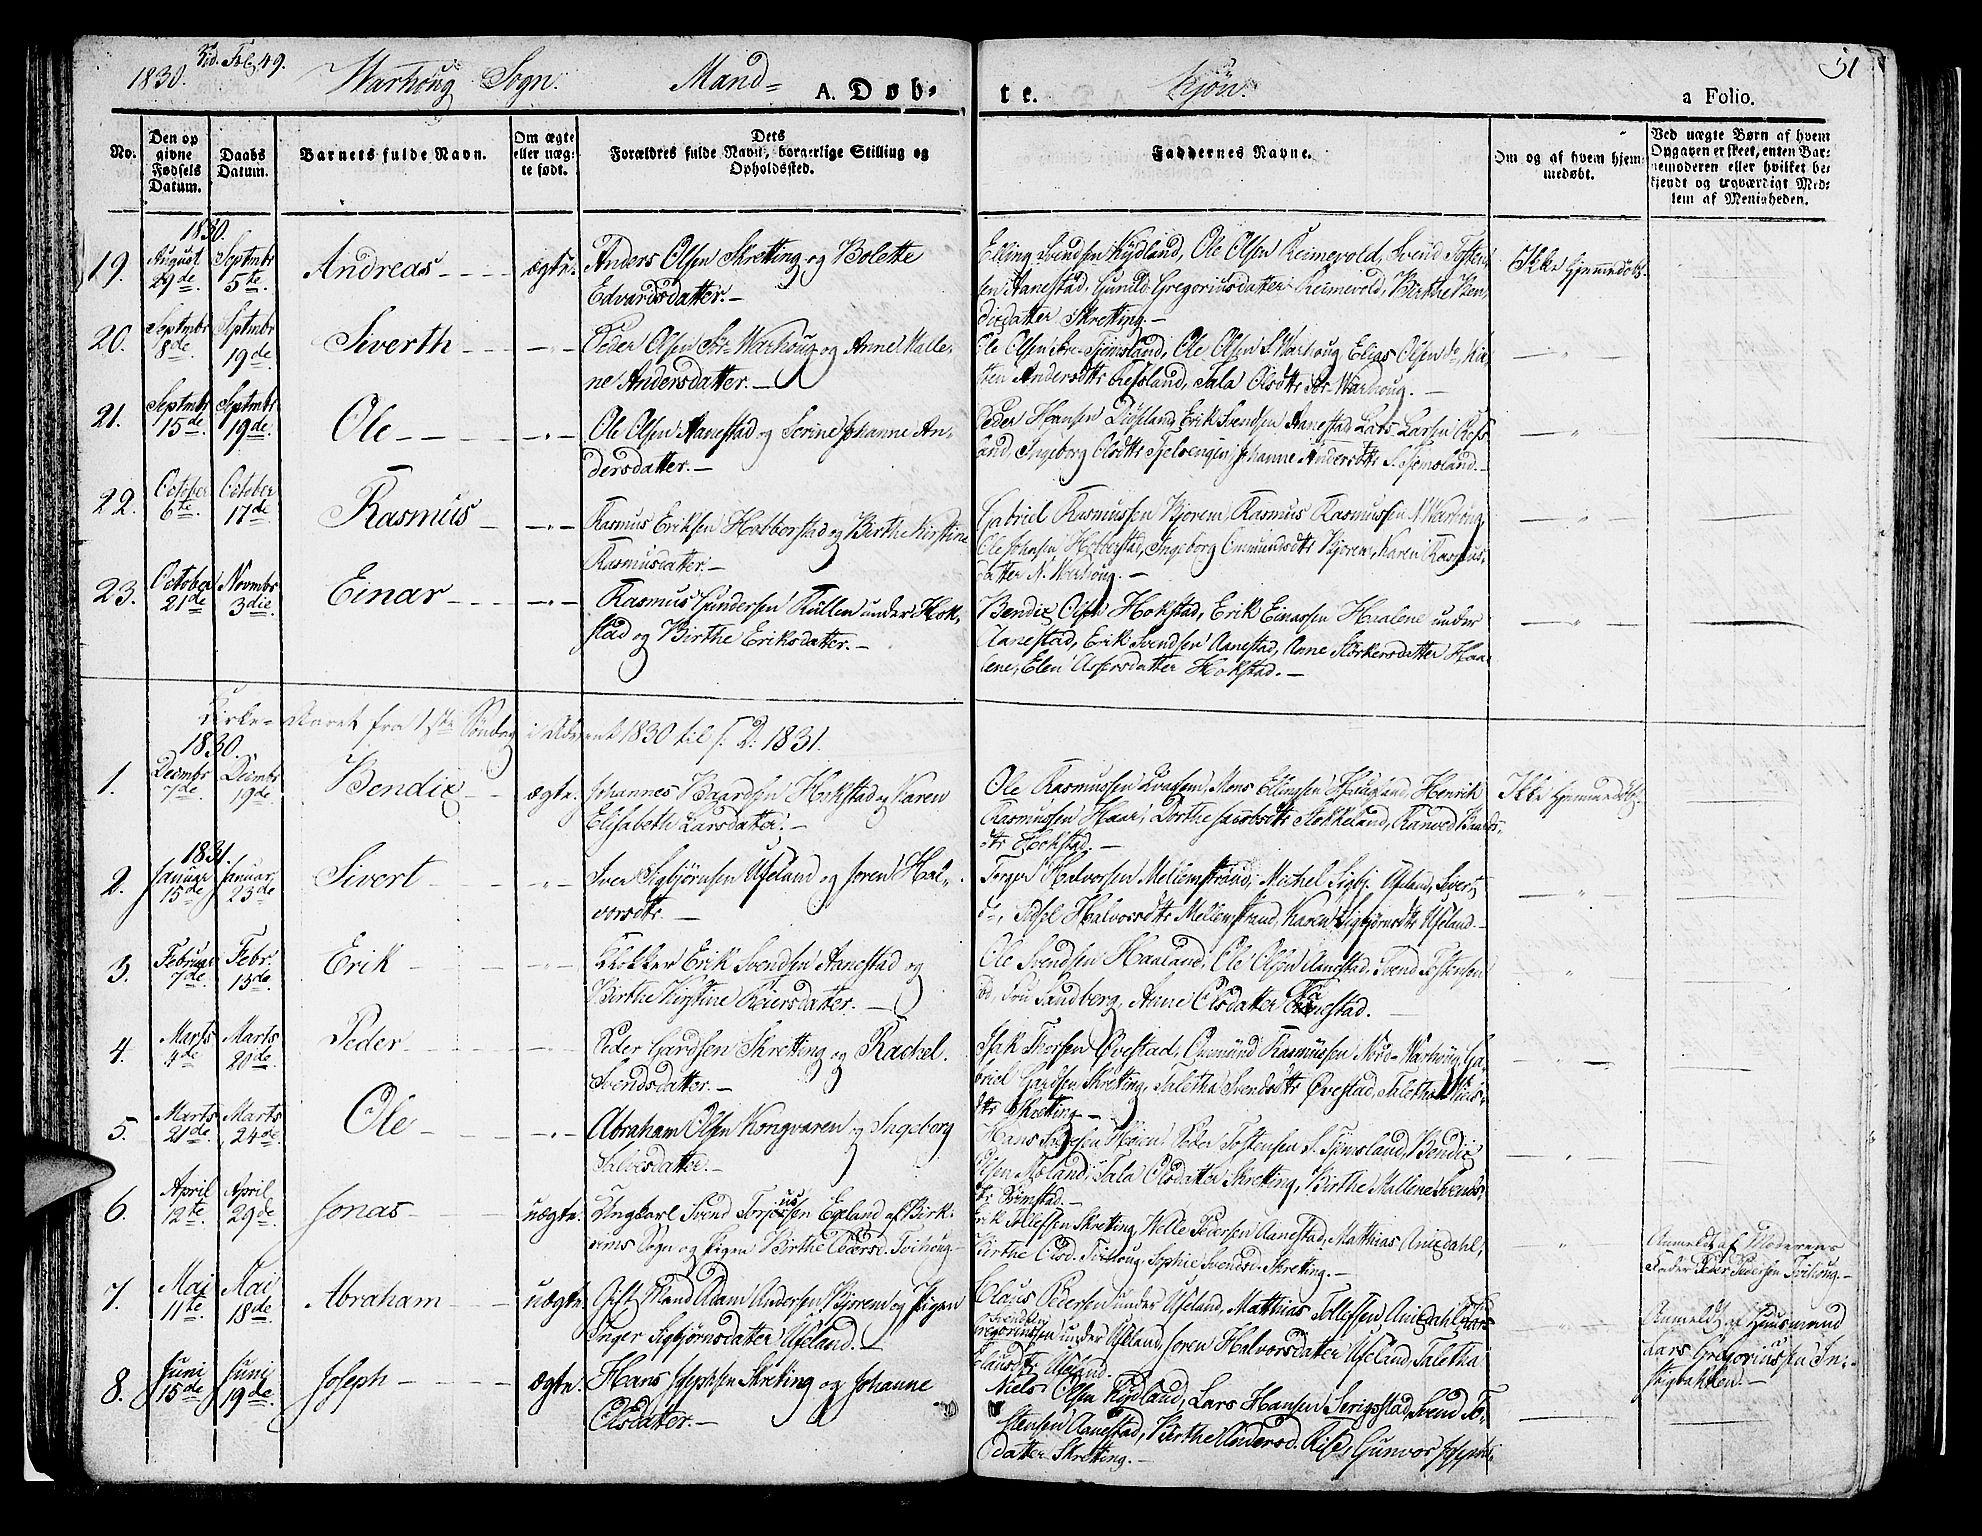 1830. Vid. Fol. 49. Warhoug Sogn. Mand= A. Døb= te. Kjøn. a Folio. 51
No. Den op givne Fødsels Datum. Daabs Datum. Barnets fulde Navn. Om ægte eller uægte født. Dets Forældres fulde Navn, borgerlige Stilling og Opholdssted. Faddernes Navne. Om og af hvem hjemmedøbt. Ved uægte Børn af hvem Opgaven er skeet, enten Barnemoderen eller hvilket bekjendt og troværdigt Medlem af Menigheden.
1830.
19. August 29de Septmbr 5te Andreas ægte. Anders Olsen Skretting og Bolette
Edvardsdatter.
Elling Svendsen Kydland, Ole Olsen Reimevold, Svend Tosten-
sen Aanestad, Gunild Gregoriusdatter Reimevold, Birthe Ben-
dixdatter Skretting.
Ikke hjemmedøbt.
20. Septmbr 8de Septmbr 19de Siverth Peder Olsen Str Warhoug og Anne Malle-
ne Andersdatter.
Ole Olsen Tjemsland, Ole Olsen S. Warhoug Elias Olsen do,
Andersdttr Refsland, Tala Olsdttr Str Warhoug.
21. Septmbr 15de Septmbr 19de Ole Ole Olsen Aanestad og Serine Johanne An-
dersdatter.
Peder Hansen Erik Svendsen Aanestad Lars Larsen Refs-
land, Ingeborg Olsdttr Johanne Andersdttr S. Tjemsland.
22. October 6te October 17de Rasmus Rasmus Eriksen Hobberstad og Birthe Kirstine
Rasmusdatter.
Gabriel Rasmussen Bjorem, Rasmus Rasmussen N. Warhoug,
Ole Johnsen Hobberstad, Ingeborg Ommundsdttr Bjorem, Karen Rasmus-
datter N. Warhoug.
23. October 21de Novmbr 3die Einar Rasmus Gundersen Kullen under Hok-
stad og Birthe Eriksdatter.
Bendix Olsen Hokstad, Erik Einarsen Haalene under
Aanestad, Erik Svendsen Aanestad, Anne Størkersdatter Haa-
lene, Elen Assersdatter Hokstad.
Kirke-Aaret fra 1ste Søndag i Advent 1830 til s. D. 1831.
1830.
1. Decmbr 7de Decmbr 19de Bendix ægte. Johannes Baardsen Hokstad og Karen
Elisabeth Larsdatter.
Ole Rasmussen Mons Ellingsen Haugland, Henrik
Rasmussen Haar, Dorthe Jacobsdttr Stokkeland, Ranved Baards-
dttr Hokstad.
Ikke hjemmedøbt.
1831.
2. Januar 15de Januar 23de Sivert Iver Sigbjørnsen Ueland og Joren Hal-
vorsdttr.
Torger Halvorsen Mellemstrand, Michel Sigbj. Ueland, Sivert
do, Sidsel Halvorsdttr Mellemstrand, Karen Sigbjørnsdttr Ueland.
3. Februar 7de Febr. 13de Erik Klokker Erik Svendsen Aanestad og
Birthe Kirstine Reiersdatter.
Ole Svendsen Haaland, Ole Olsen Aanestad, Svend Tostensen
do, Fru Sandberg, Anne Olsdatter Aanestad.
4. Marts 4de Marts 20de Peder Peder Gardsen Skretting og Rackel
Svendsdatter.
Isak Thorsen Øvestad, Ommund Rasmussen Nord-Warhoug, Ga-
briel Gardsen Skretting, Taletha Svendsdttr Øvestad, Taletha
dttr Skretting.
5. Marts 21de Marts 24de Ole Abraham Olsen Kongvaren og Ingeborg
Salvesdatter.
Hans Høien, Peder Tostensen S. Tjemsland, Bendix
Olsen Tala Olsdatter Skretting, Birthe Mallene Svends-
dttr
6. April 12te April 29de Jonas uægte. Ungkarl Svend Egeland af Birk-
rems Sogn og Pigen Birthe Tvihoug
Erik Tollefsen Skretting, Peder Pedersen Aanestad, Matthias Anisdahl,
Birthe Olsd. Tvihoug, Sophie Svendsd. Skretting.
Anmeldt af Moderens
Fader Peder Pedersen Tvihoug.
7. Mai 11te Mai 18de Abraham uægte. Gift Mand Adam Andersen Bjorem og Pigen
Inger Sigbjørnsdatter Ueland.
Claus Reiersen under Ueland, Matthias Tollefsen Anisdahl, Lars
Gregoriussen under Ueland, Joren Halvorsdatter Ueland, Taletha
Clausdttr Ueland.
Anmeldt af Huusmand
Lars Gregoriussen
8. Juni 15de Juni 19de Joseph ægte. Hans Josephsen Skretting og Johanne
Olsdatter.
Niels Olsen Kydland, Lars Hansen Serigstad, Svend To-
stensen Aanestad, Birthe Andersd. Rise, Gunvor
datter Skretting.